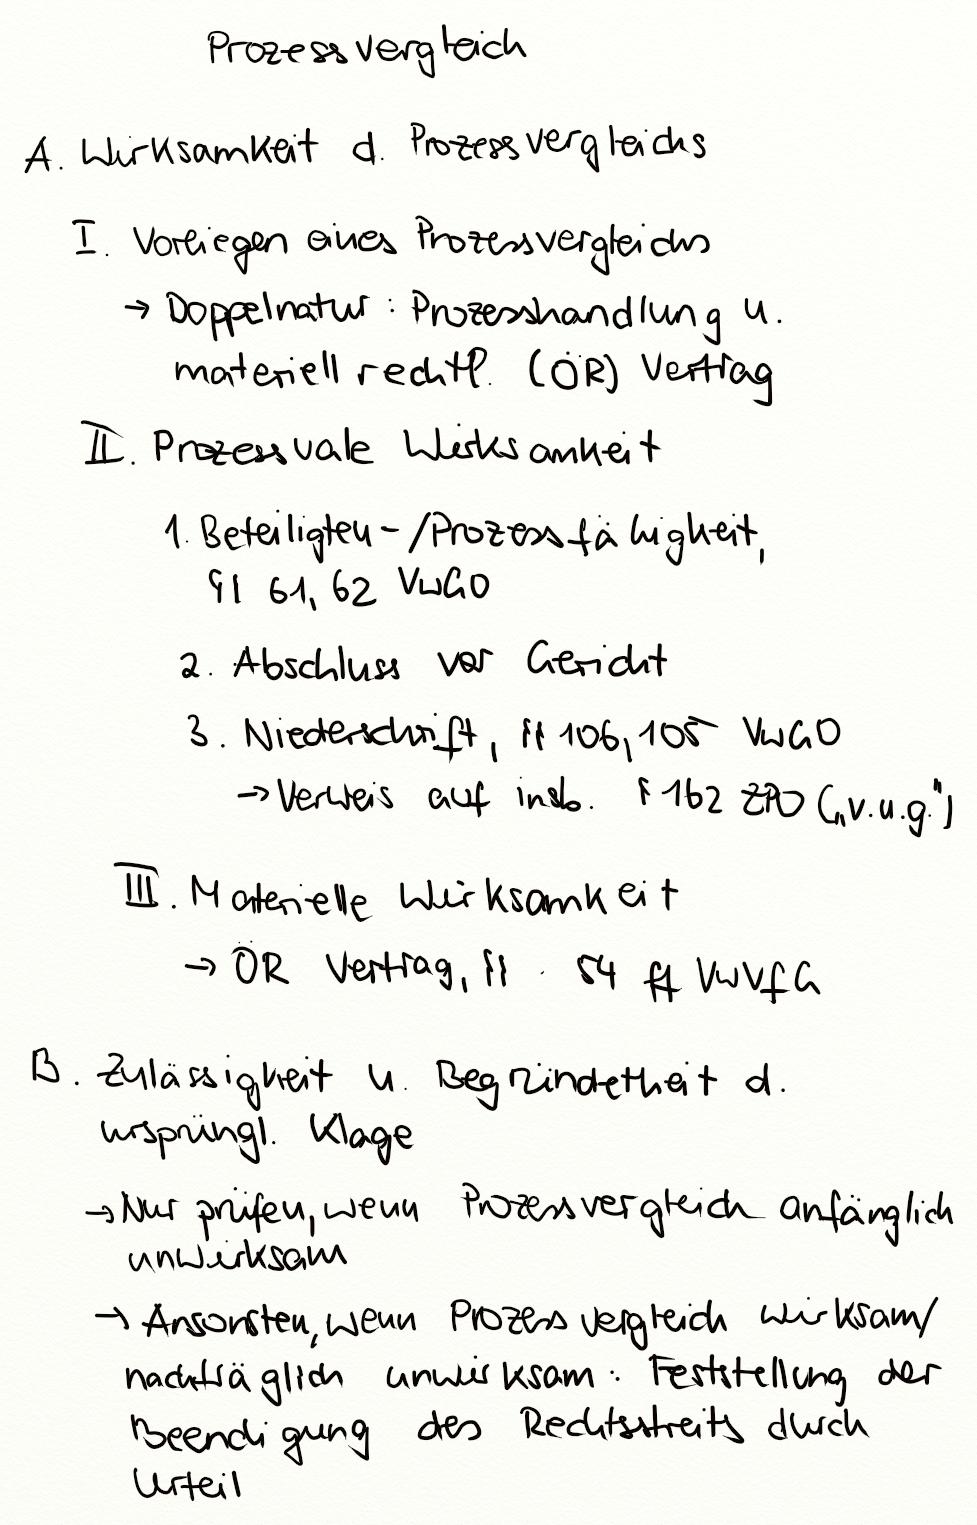 Prozessvergleich
A. Wirksamkeit d. Prozessvergleichs
I. Vorliegen eines Prozessvergleichs
→ Doppelnatur : Prozesshandlung u.
materiell rechtl. (ÖR) Vertrag
II. Prozessuale Wirksamkeit
1. Beteiligten-/Prozessfähigkeit,
§§ 61, 62 VwGO
2. Abschluss vor Gericht
3. Niederschrift, §§ 106, 105 VwGO
→ Verweis auf insb. § 162 ZPO („v.u.g.")
III. Materielle Wirksamkeit
→ ÖR Vertrag, §§ 54 ff VwVfG
B. Zulässigkeit u. Begründetheit d.
ursprüngl. Klage
→ Nur prüfen, wenn Prozessvergleich anfänglich
unwirksam
→ Ansonsten, wenn Prozessvergleich wirksam/
nachträglich unwirksam : Feststellung der
Beendigung des Rechtsstreits durch
Urteil